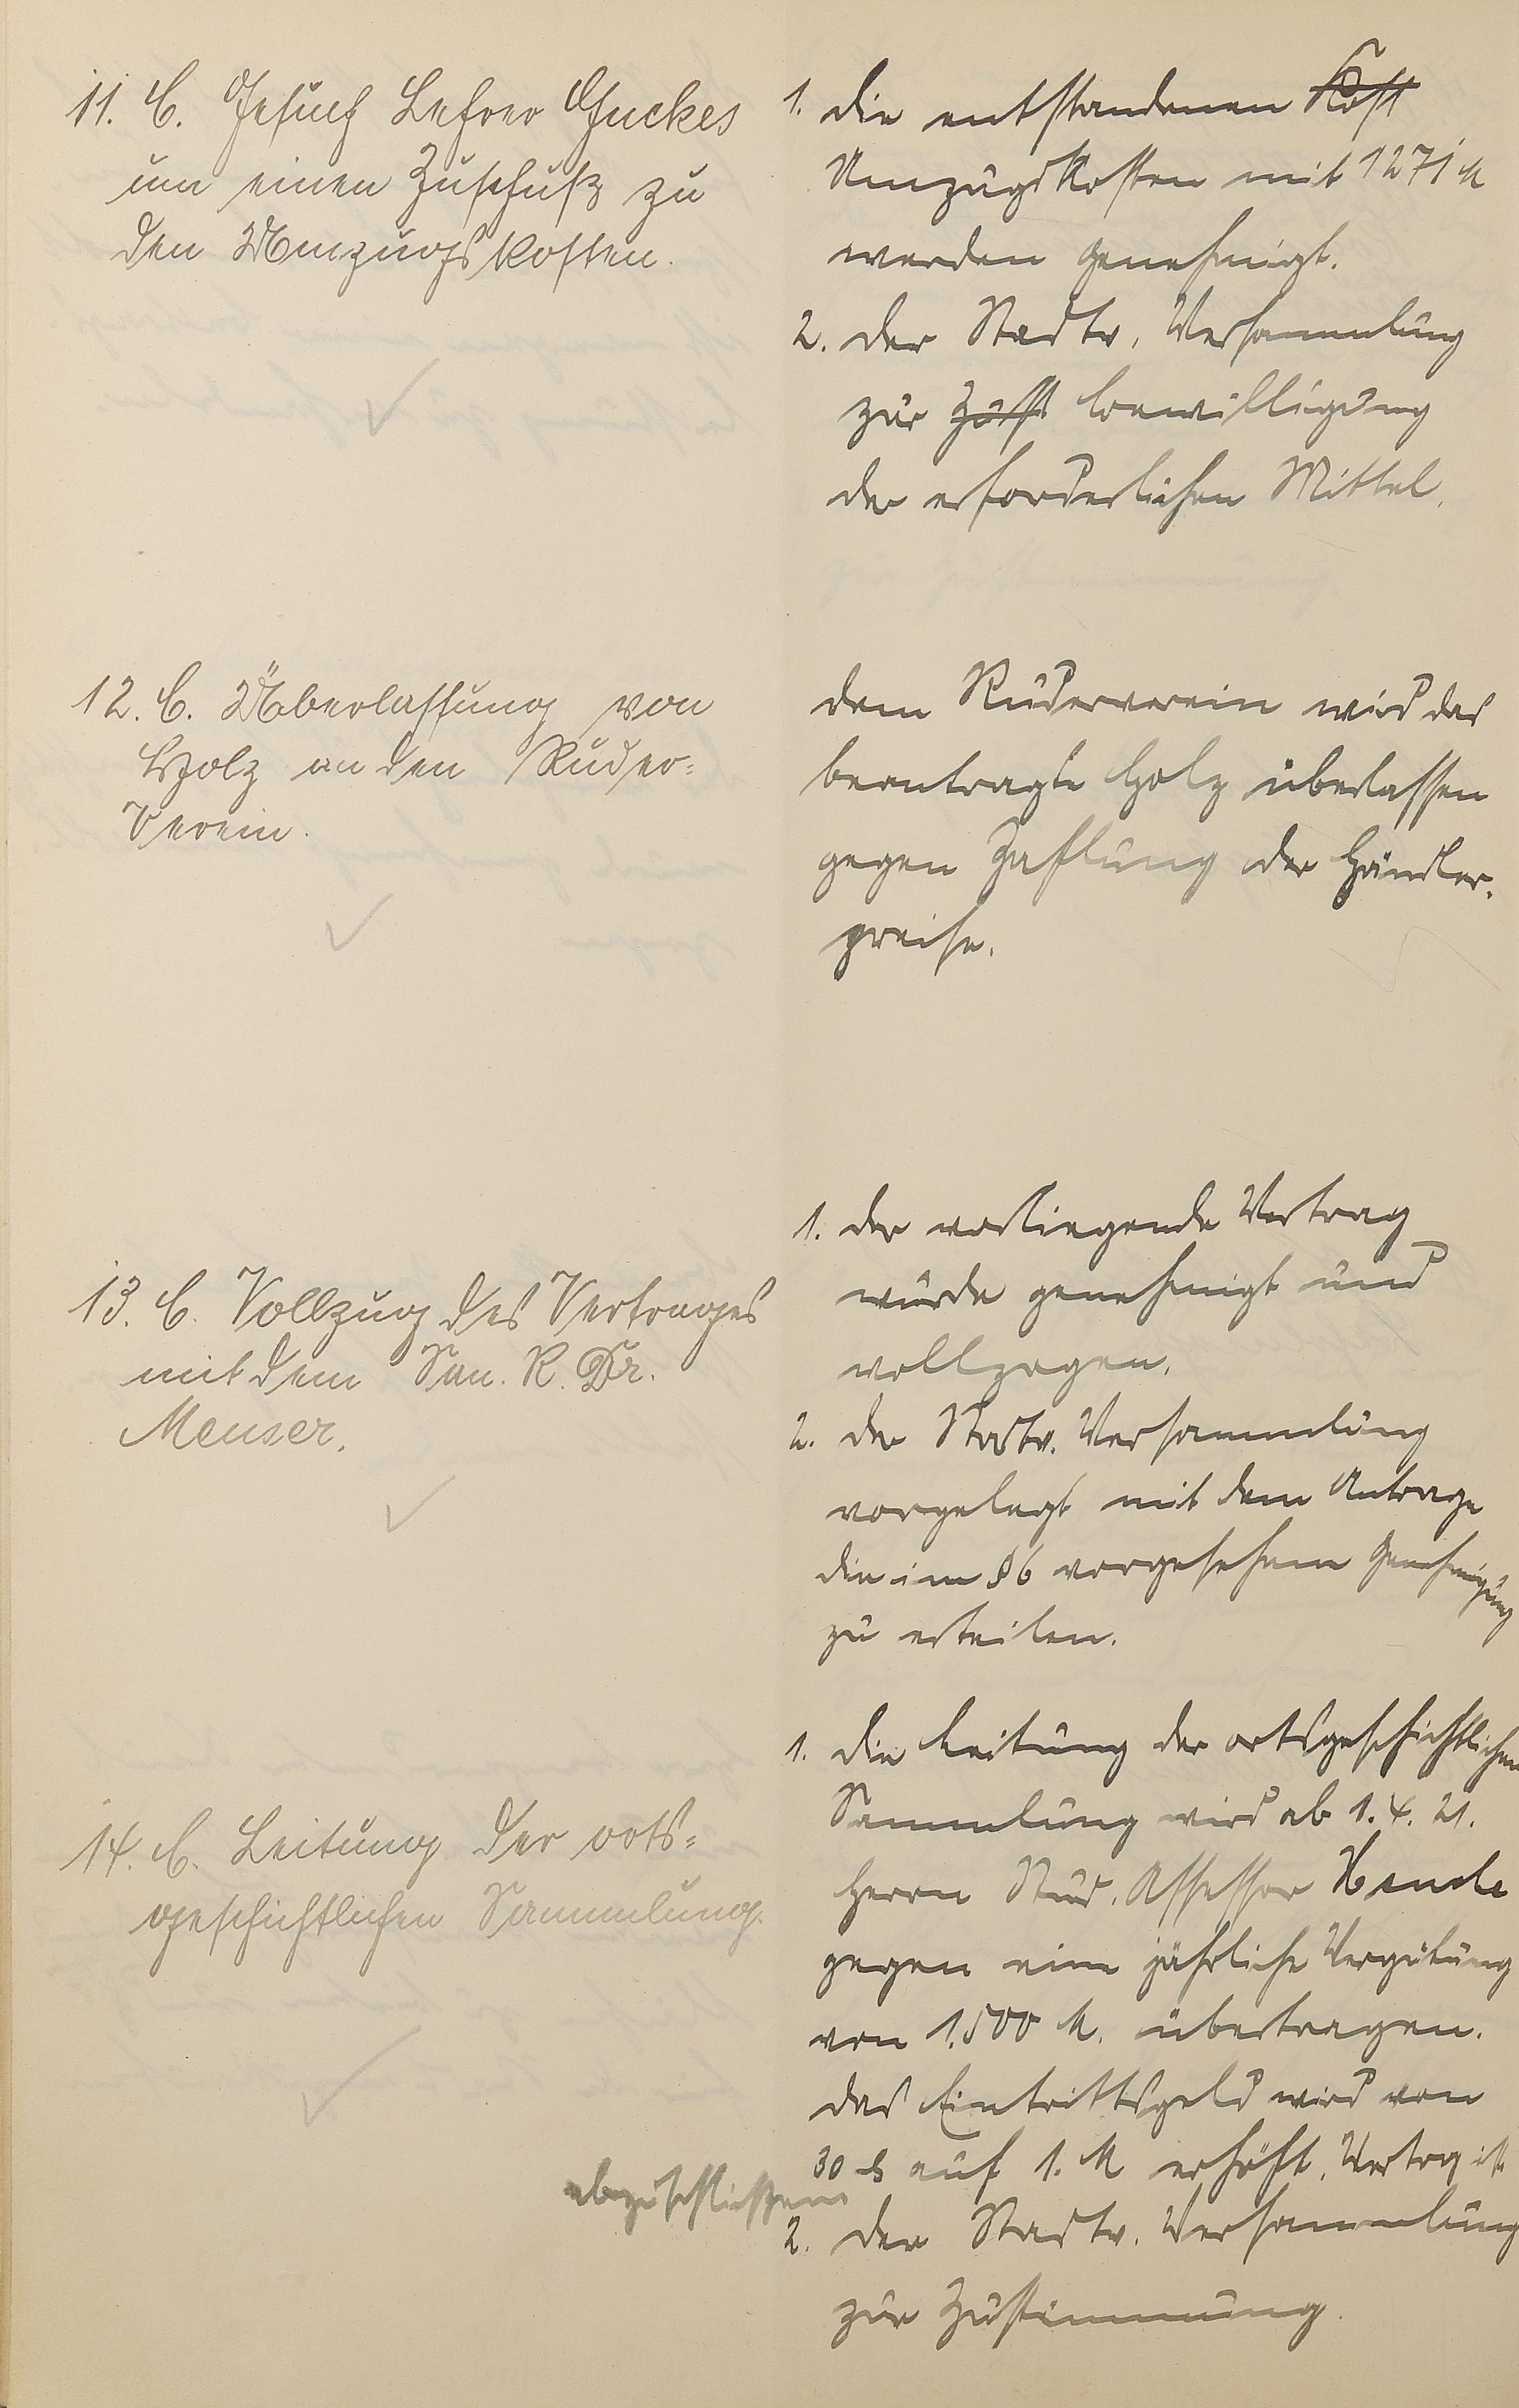 11. C. Gesuch Lehrer Guckes
um einen Zuschuß zu
den Umzugskosten.
1. die entstandenen Kost
Umzugskosten mit 1271 M
werden genehmigt.
2. der Stadtv. Versammlung
zur Zust bewilligung
der erforderlichen Mittel.
12. C. Überlassung von
Holz an den Ruder-
Verein.
dem Ruderverein wird das
beantragte Holz überlassen
gegen Zahlung der Händler-
preise.
13. C. Vollzug des Vertrages
mit dem San. R. Dr.
Meuser.
1. der vorliegende Vertrag
wurde genehmigt und
vollzogen.
2. der Stadtv. Versammlung
vorgelegt mit dem Antrage
die im § 6 vorgesehene Genehmigung
zu erteilen.
14. C. Leitung der orts-
geschichtlichen Sammlung.
1. die Leitung der ortsgeschichtlichen
Sammlung wird ab 1.4.21.
Herrn Stud. Assessor
gegen eine jährliche Vergütung
von 1.500 M. übertragen.
das Eintrittsgeld wird von
30 auf 1. M erhöht. Vertrag ist
abzuschließen
2. der Stadtv. Versammlung
zur Zustimmung.